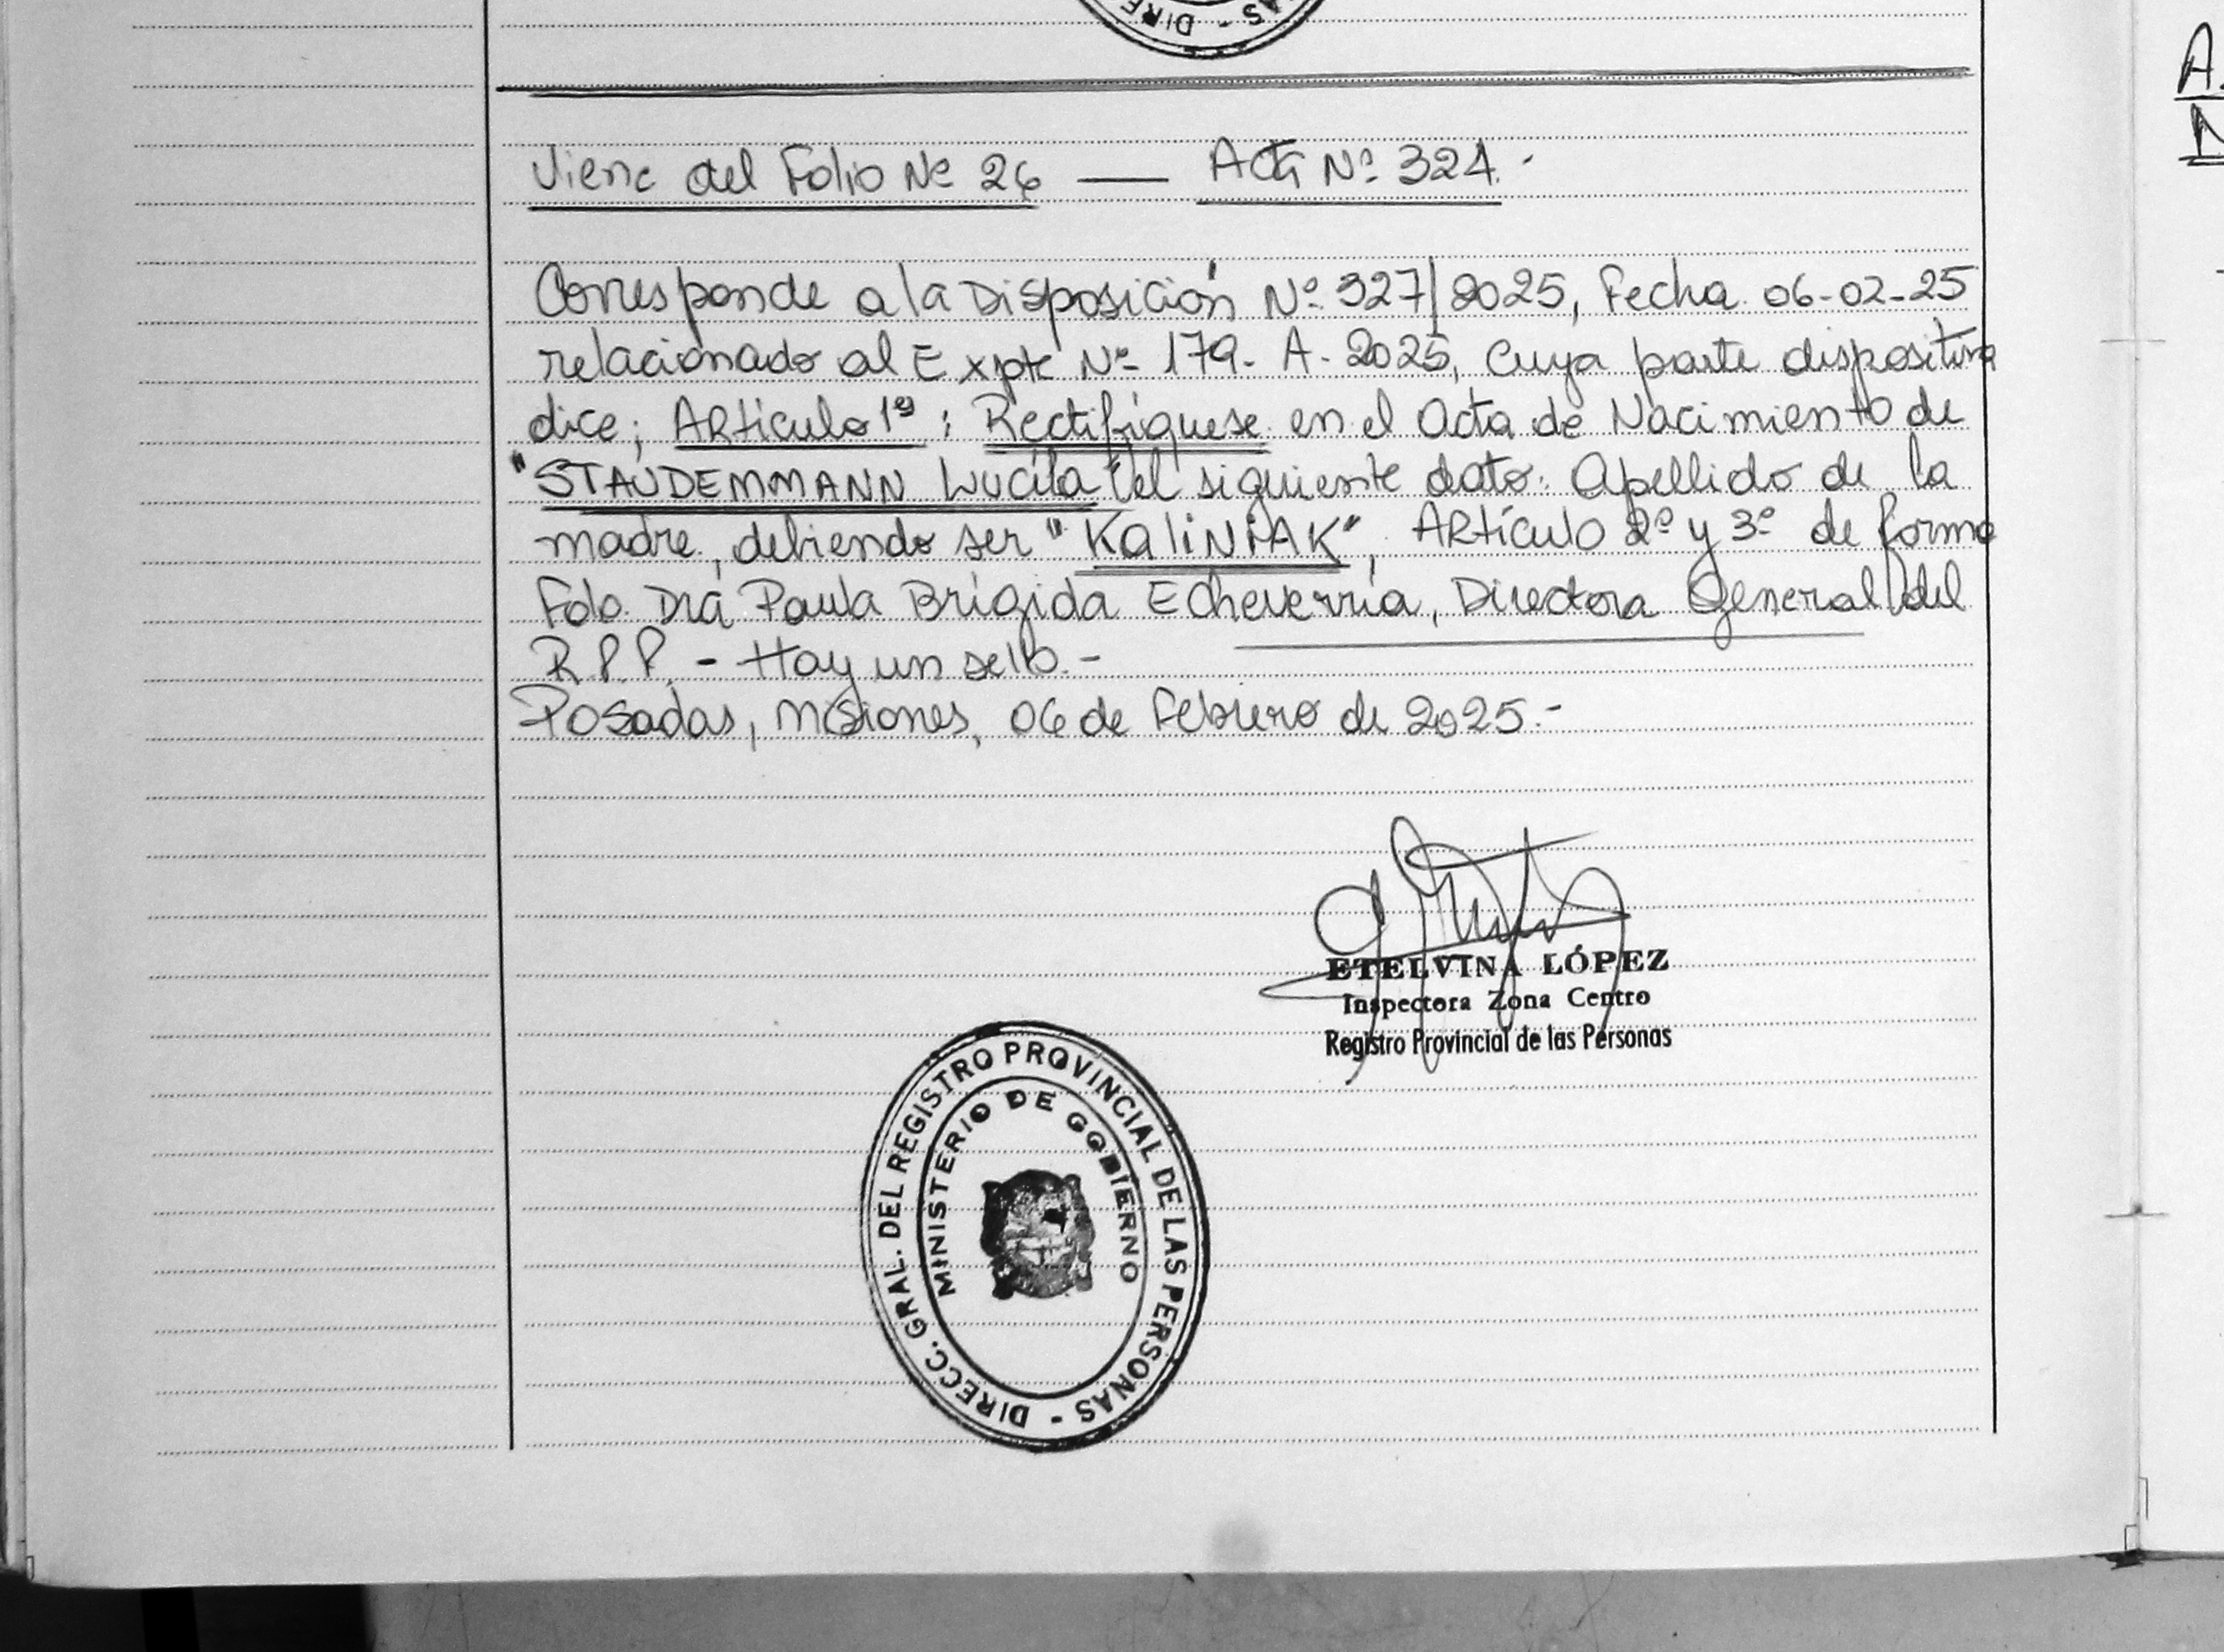 DIRE
AS -
Viene del Folio Nº 26 — Acta Nº 324.-
Corresponde a la Disposición Nº 327/2025, Fecha 06-02-25
relacionado al Expte Nº 179- A- 2025, Cuya parte dispositiva
dice; Artículo 1º : Rectifíquese en el Acta de Nacimiento de
"STAUDEMMANN Lucila" el siguiente dato: Apellido de la
madre, debiendo ser "KaliNiAK", Artículo 2º y 3º de forma
Fdo. Dra Paula Brígida Echeverría, Directora General del
R.P.P. - Hay un sello.-
Posadas, Misiones, 06 de Febrero de 2025.-
ETELVINA LÓPEZ
Inspectora Zona Centro
Registro Provincial de las Personas
DIRECC. GRAL. DEL REGISTRO PROVINCIAL DE LAS PERSONAS -
MINISTERIO DE GOBIERNO